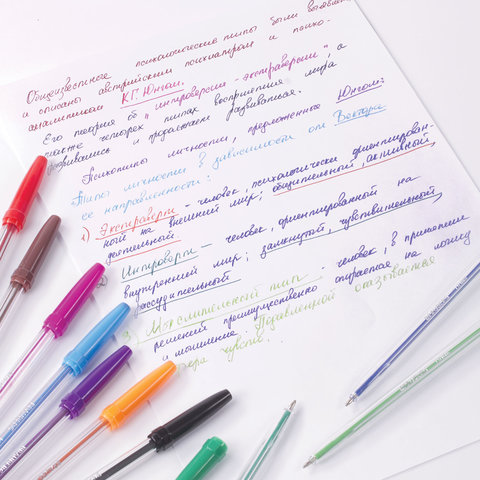 Общеизвестные психологические типы были выявлены
и описаны австрийским психиатром и психо-
аналитиком К.Г. Юнгом.
Его теория об "интроверсии - экстраверсии", а
также четырех типах восприятия мира
развивались и продолжают развиваться.
Психотипы личности, предложенные Юнгом:
Типы личности в зависимости от Вектора
ее направленности:
1) Экстраверты - человек, психологически ориентирован-
ный на внешний мир; общительный, активный,
деятельный.
Интроверты - человек, ориентированный на
внутренний мир; замкнутой, чувствительный,
рассудительный
Мыслительный тип - человек, в принятии
решений преимущественно опирается на логику
и мышление. Подавленной оказывается
сфера чувств.